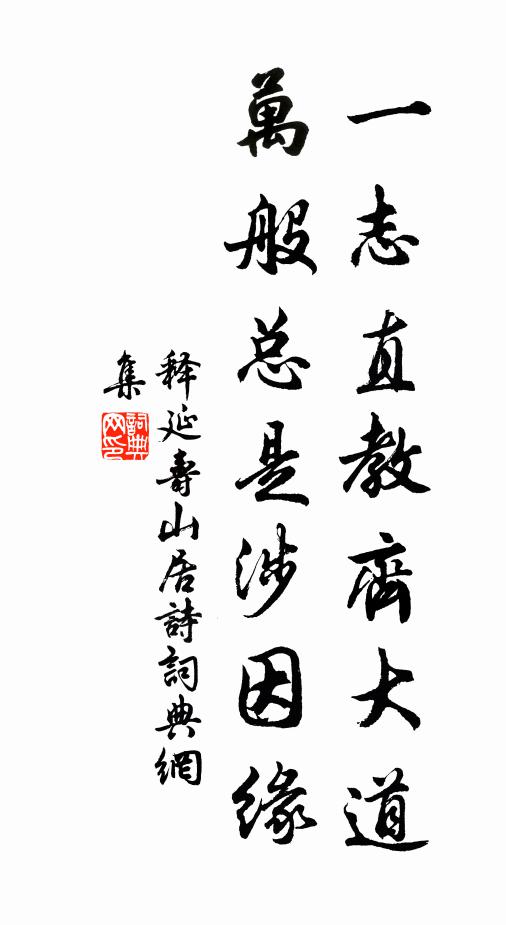 一志直教齊大道
萬般总是涉因緣
释延壽山居詩詞典網
集
詞典网印